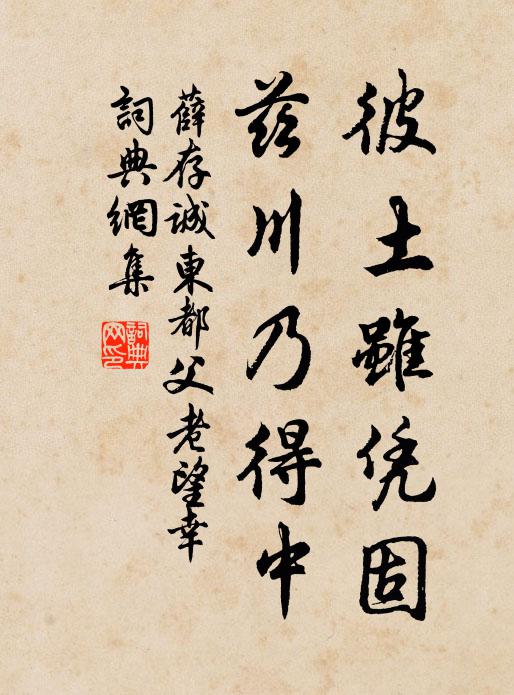 彼土雖凭固
茲川乃得中
薛存誠東都父老望幸
詞典網集
詞典網印